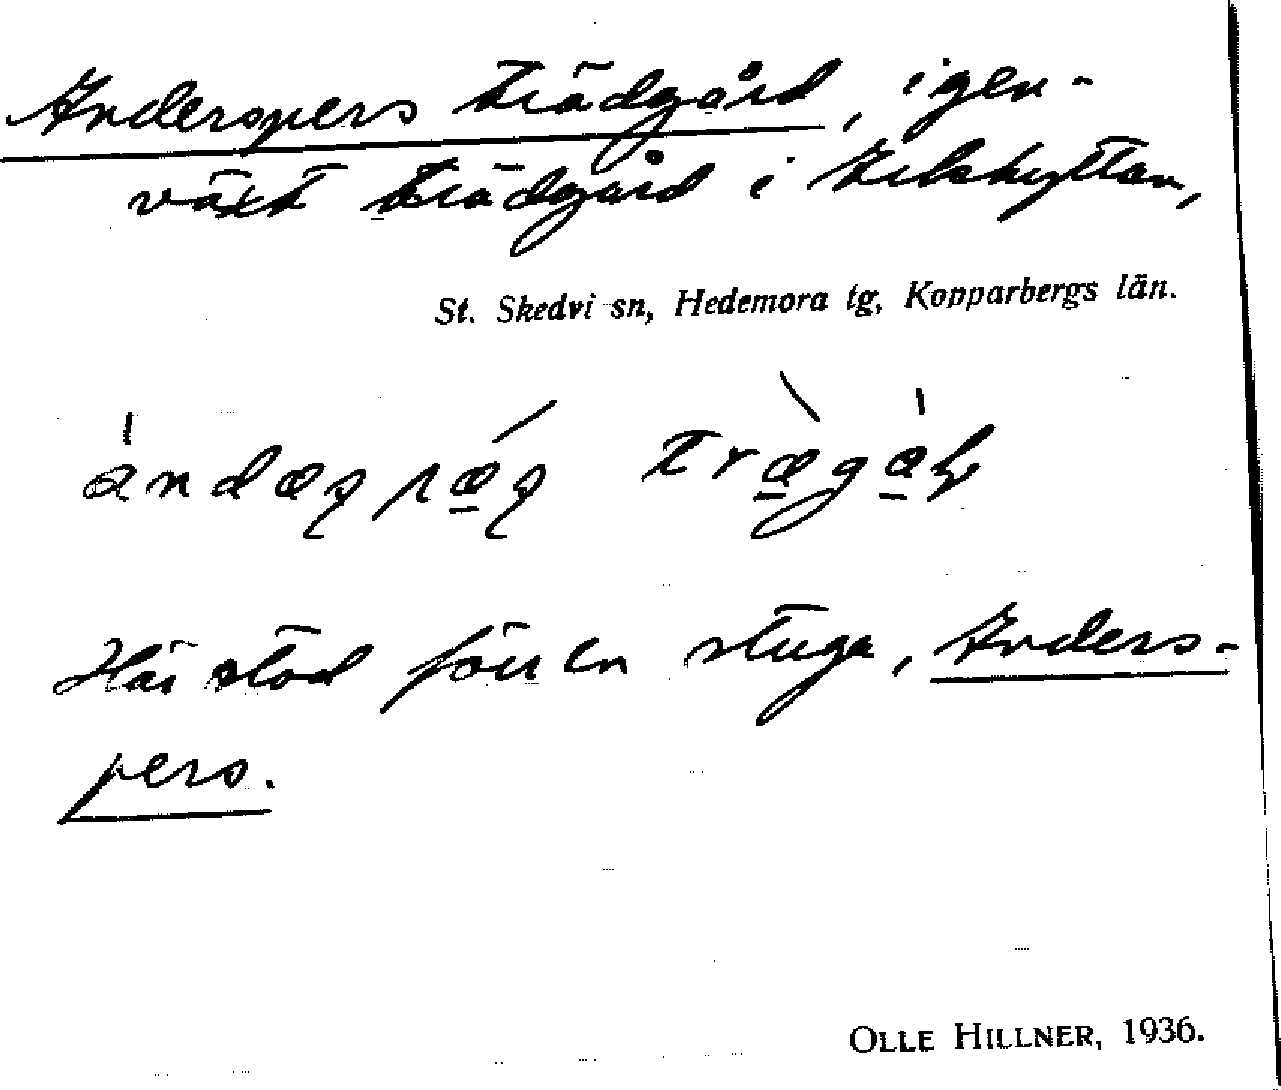 Anderspers trädgård, igen-
växt trädgård i
St. Skedvi sn, Hedemora tg, Kopparbergs län.
Här stod förr en stuga, Anders-
pers.
OLLE HILLNER, 1936.